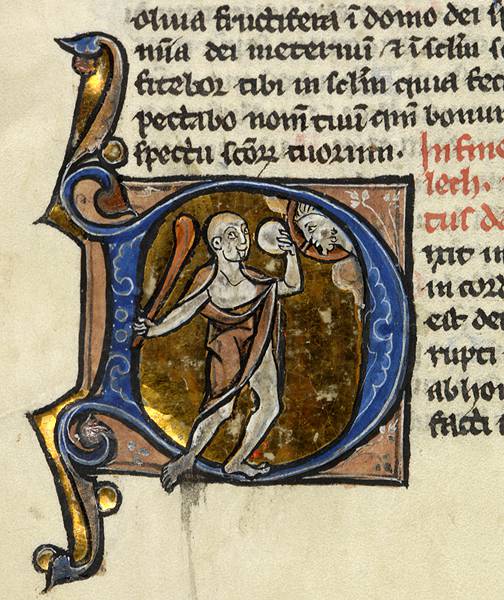 oliua fructifera ī domo dei s
mīa dei ī eternū ⁊ ī sclm̄ s
fitebor tibi in sclm̄ quia feci
pectabo nom̄ tuum qm̄ bonum
spectu scōꝝ tuorum. In fine
lech.
tus da
D
ixit in
in cord
est deu
rupti
abho
facti